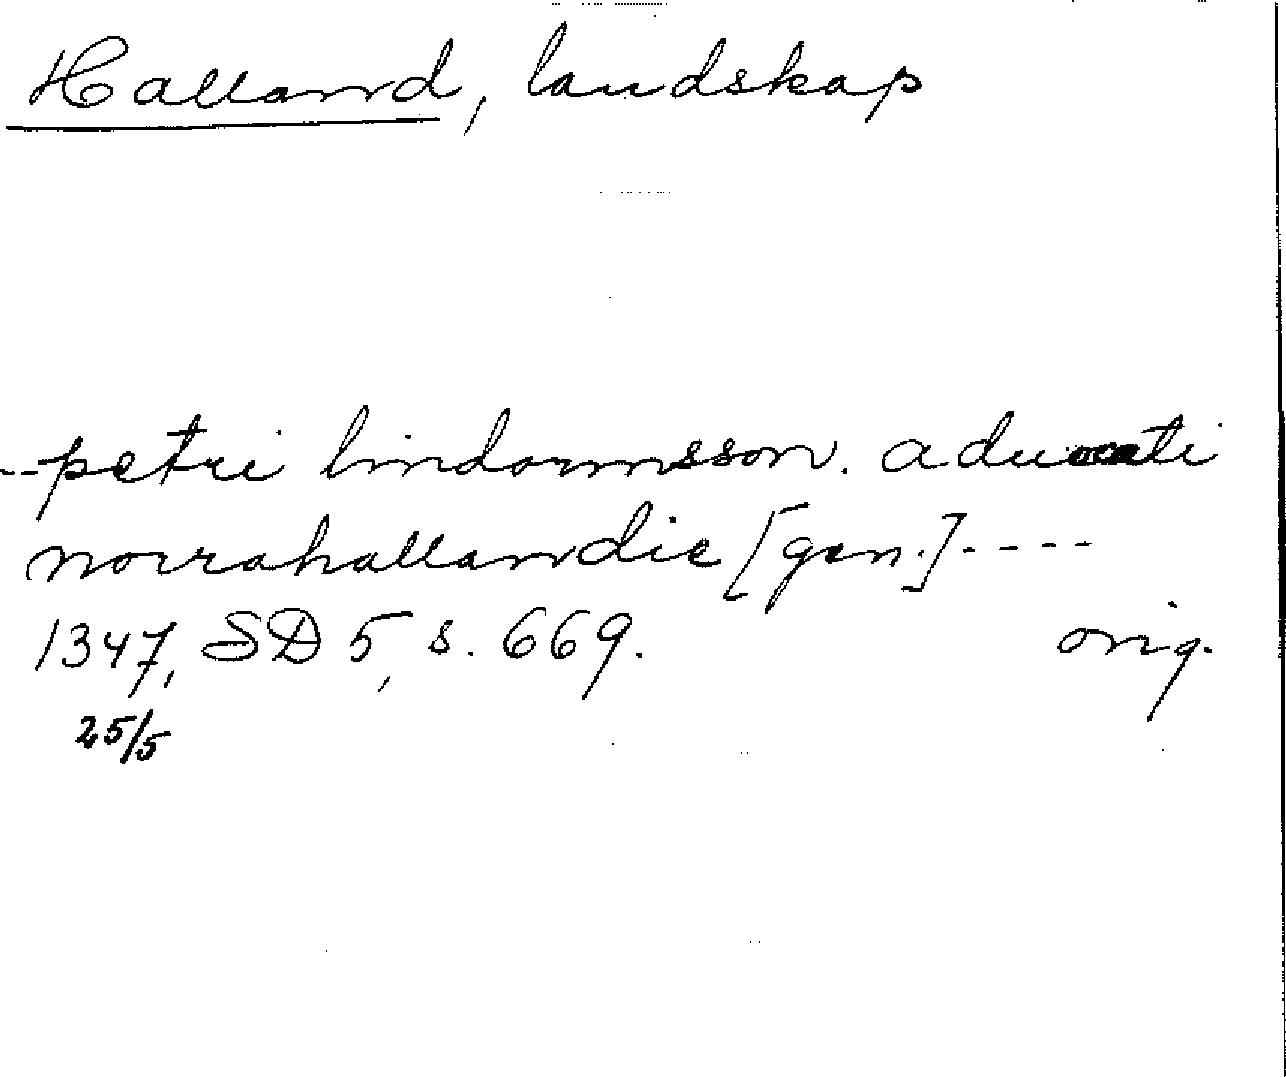 Halland, landskap
--petri lindormsson. aduocati
norrahallandie [gen.]----
1347, SD 5, s. 669. orig.
25/5